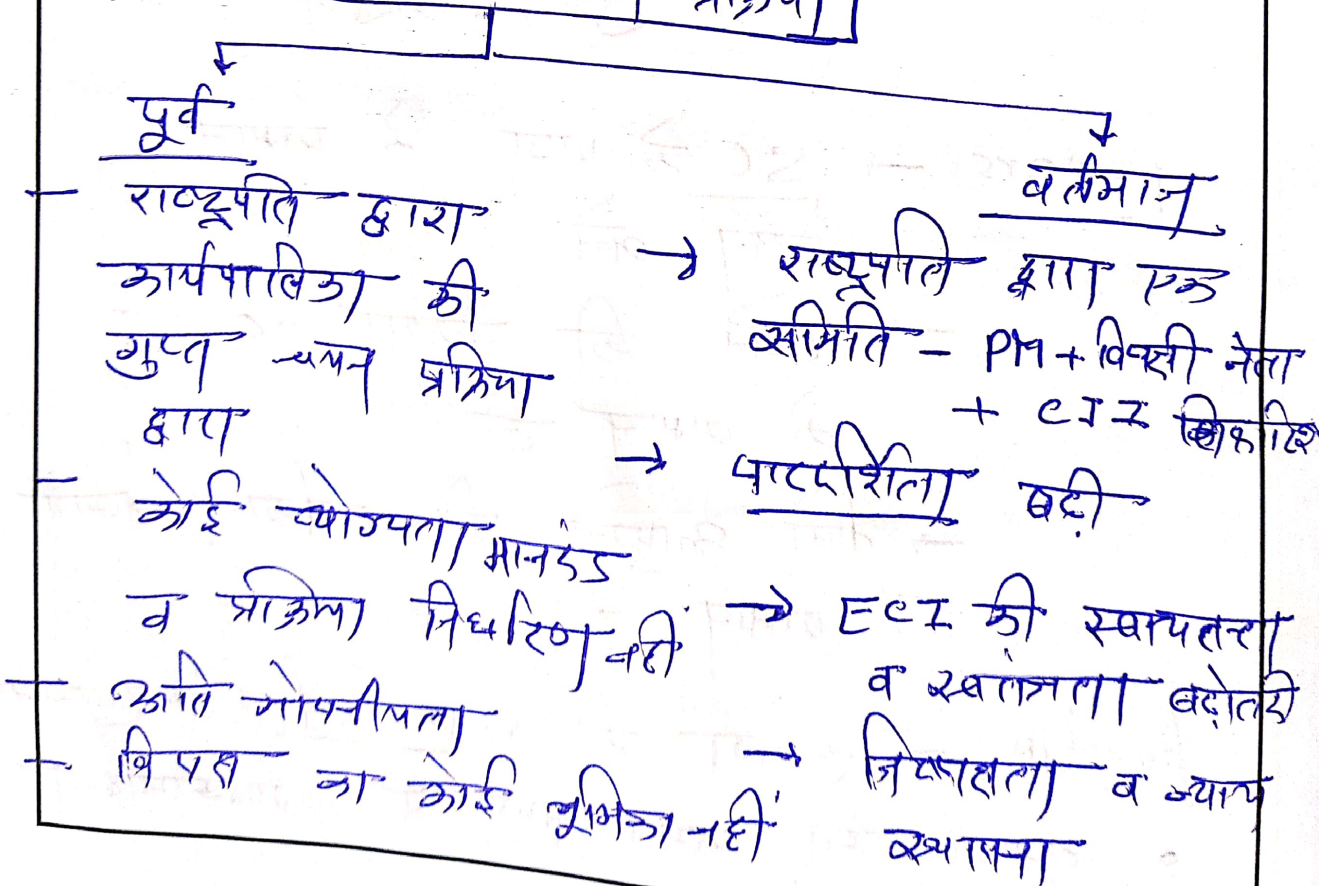 प्रक्रिया
पूर्व
- राष्ट्रपति द्वारा
कार्यपालिका की
गुप्त चयन प्रक्रिया
द्वारा
- कोई योग्यता मानदंड
व प्रक्रिया निर्धारण नहीं
- अति गोपनीयता
- विपक्ष का कोई भूमिका नहीं
वर्तमान
→ राष्ट्रपति द्वारा एक
समिति - PM + विपक्षी नेता
+ CJI सिफारिश
→ पारदर्शिता बढ़ी
→ ECI की स्वायतत्ता
व स्वतंत्रता बढ़ोतरी
→ निष्पक्षता व न्याय
स्थापना